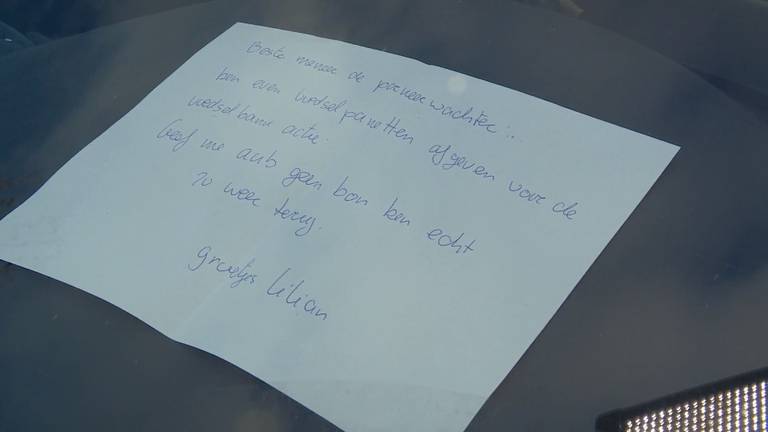 Beste meneer de parkeerwachter...
ben even voedselpaketten afgeven voor de
voedselbank actie.
Geef me aub geen bon ben echt
zo weer terug.
groetjes Lilian